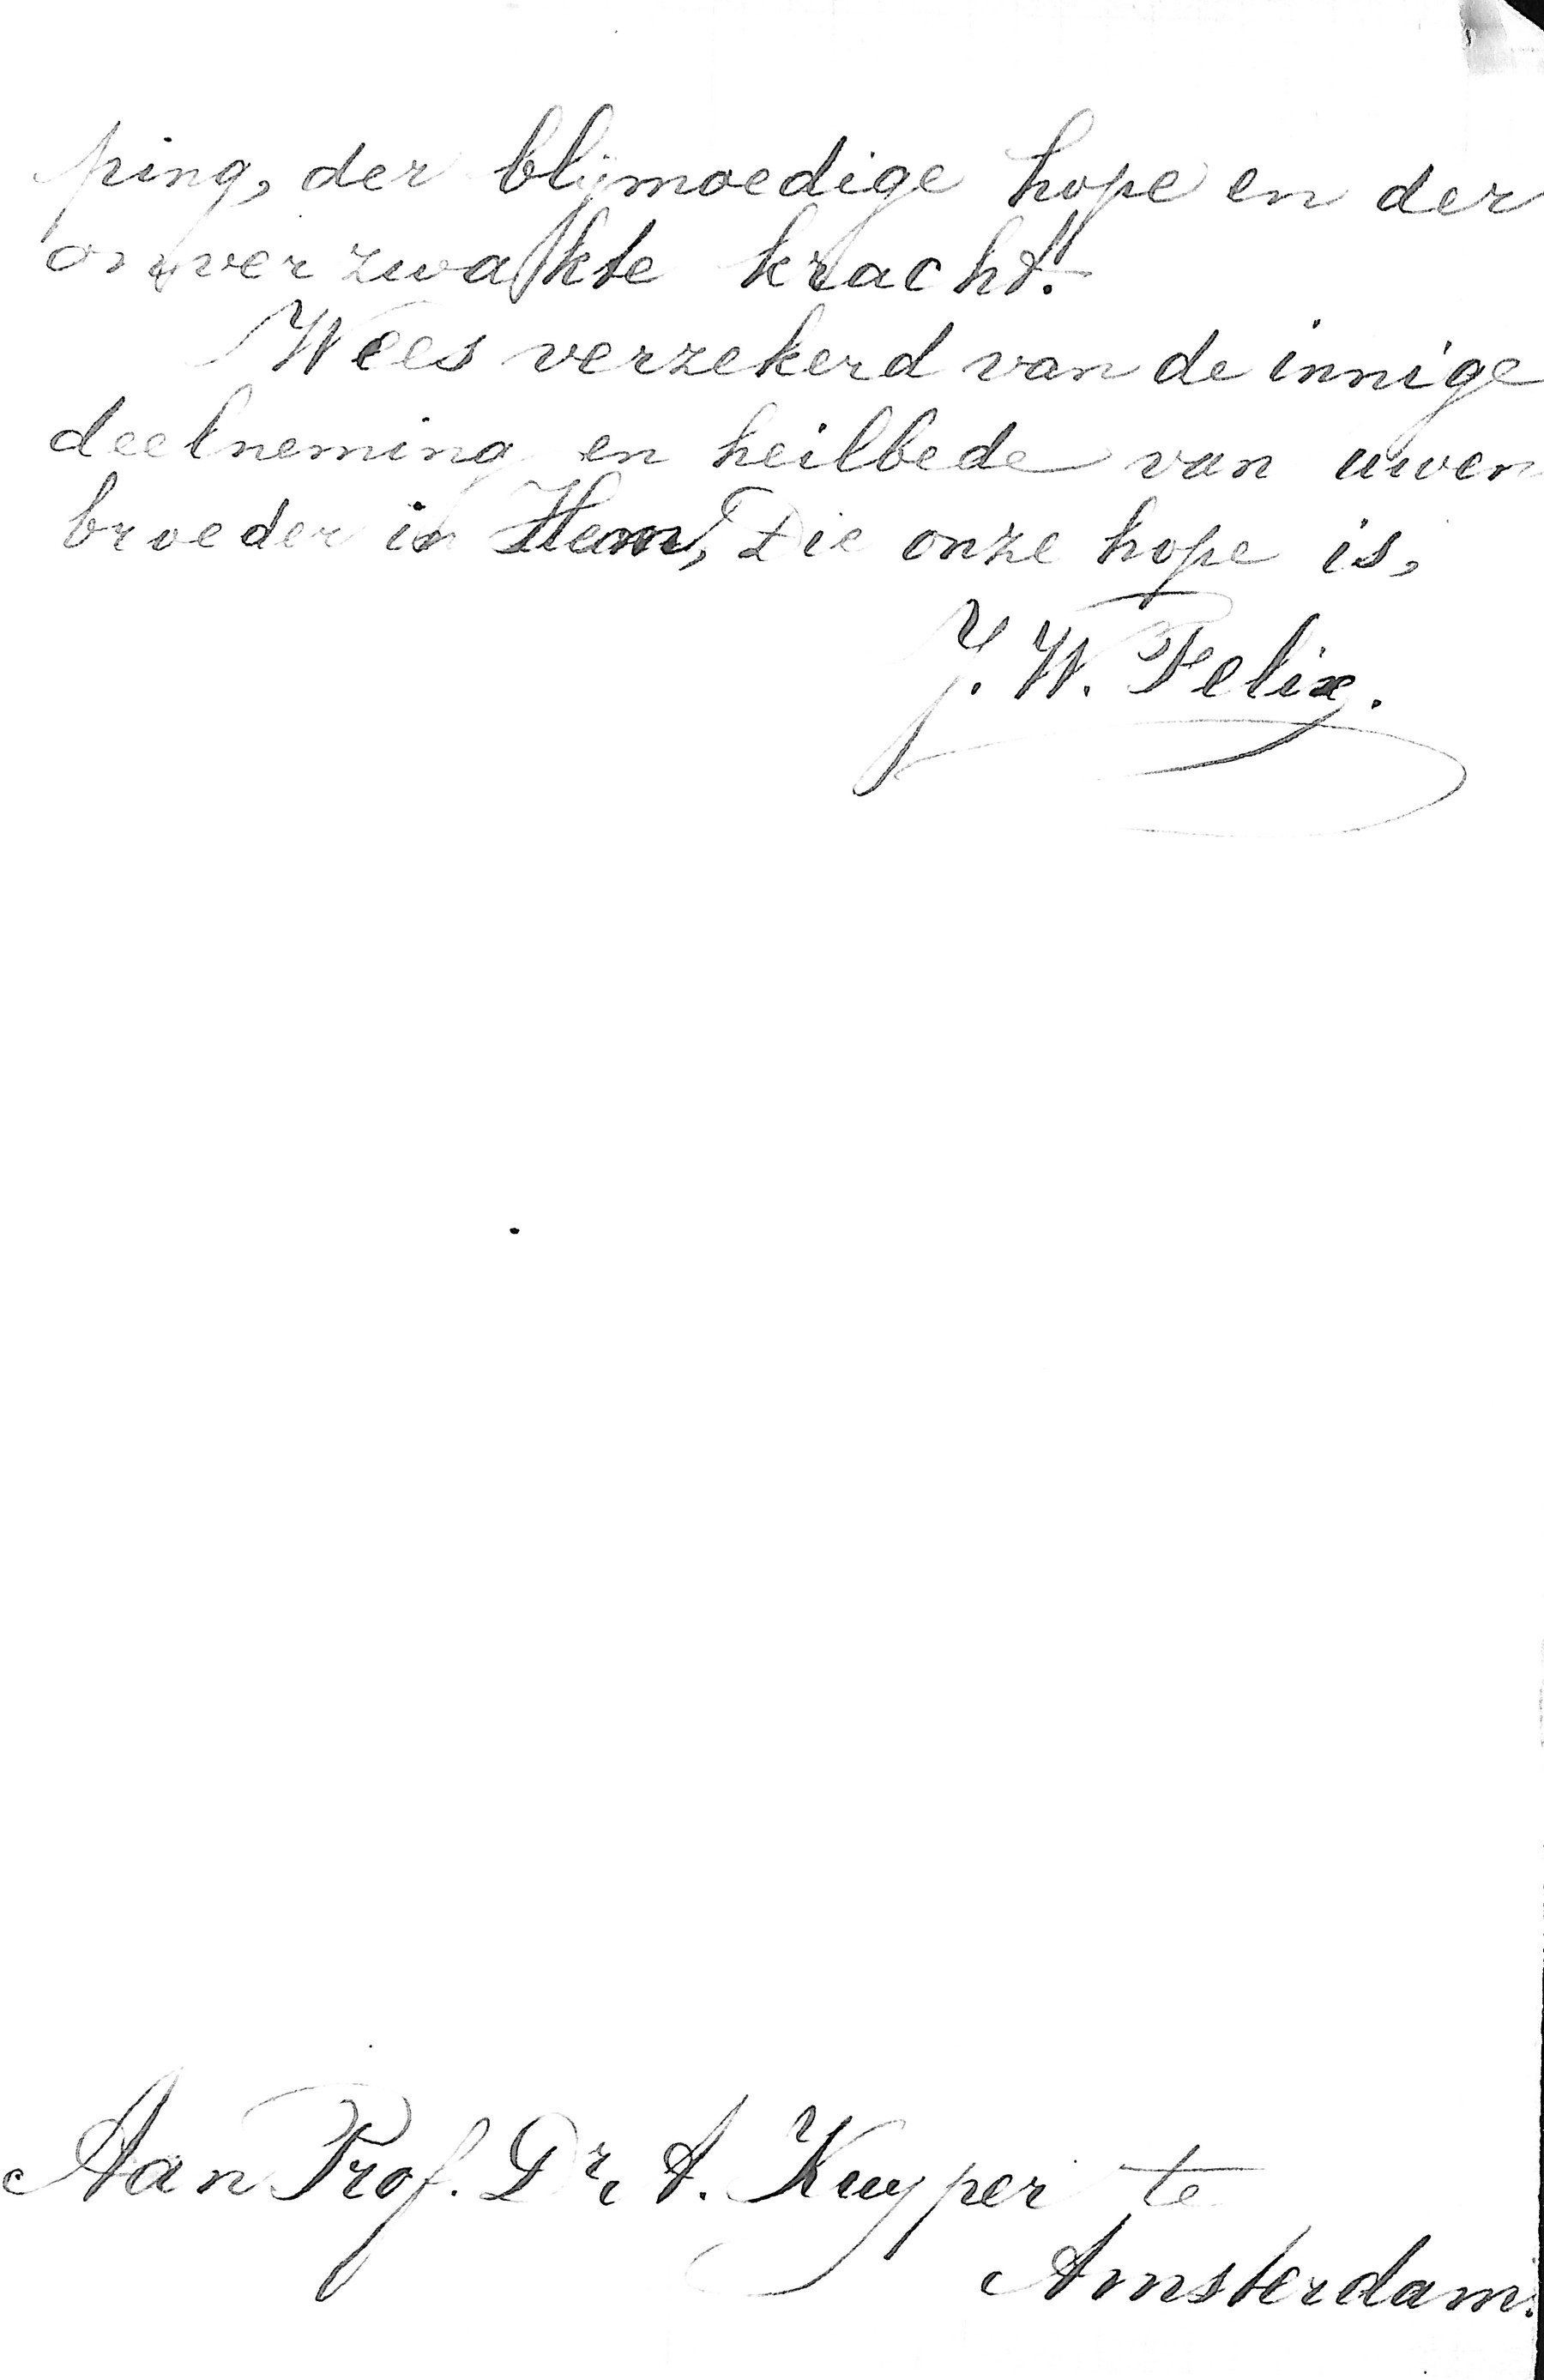 ping, der blijmoedige hope en der
onverzwakte kracht!
Wees verzekerd van de innige
deelneming en heilbede van uwen
broeder in Hem, Die onze hope is,
J. W. Felix.
Aan Prof. Dr. A. Kuyper te
Amsterdam.